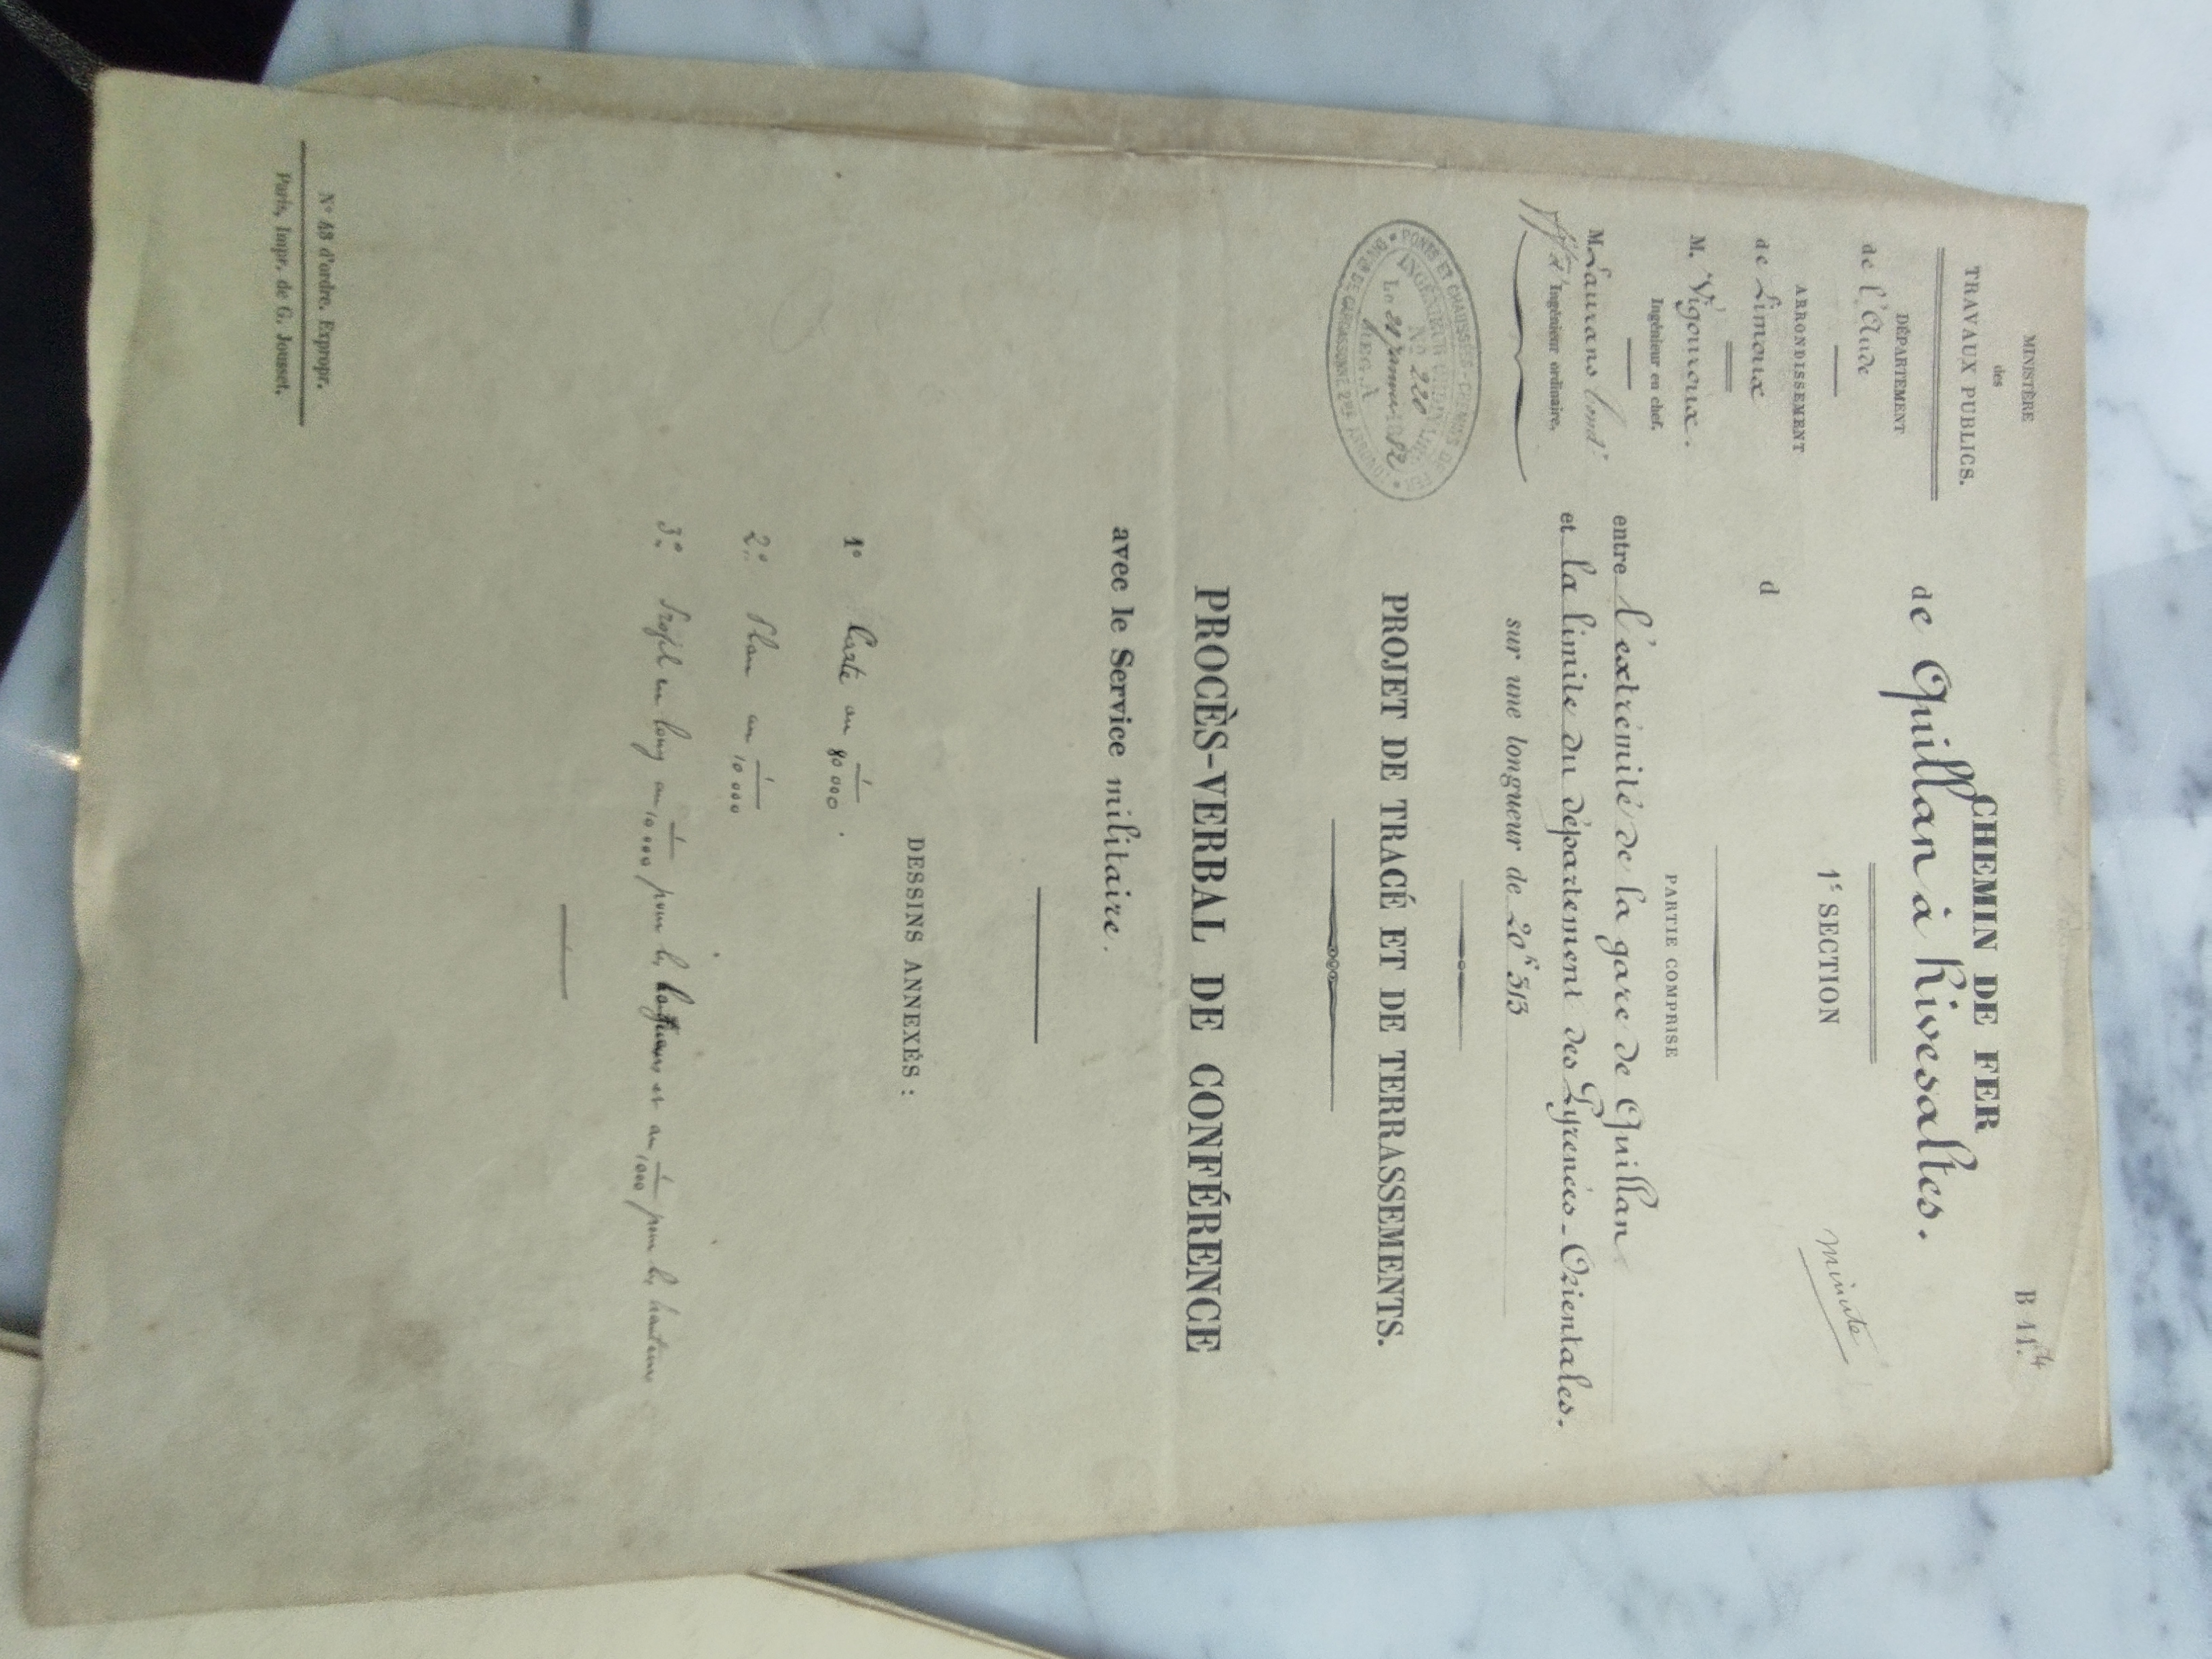 MINISTÈRE
des
TRAVAUX PUBLICS.
DÉPARTEMENT
de l'Aude
ARRONDISSEMENT
de Limoux
M. Vigouroux.
Ingénieur en chef.
M. Laurans Cond.r
Ingénieur ordinaire.
PONTS ET CHAUSSÉES - CHEMINS DE FER
INGÉNIEUR ORDINAIRE
No 220
Le 21 Janvier 1882
REG. A
DE CARCASSONNE 2me ARROND.
B 11.4
CHEMIN DE FER
de Quillan à Rivesaltes.
1e SECTION
minute
d
PARTIE COMPRISE
entre l'extrémité de la gare de Quillan
et la limite du département des Pyrenées-Orientales.
sur une longueur de 20k 313
PROJET DE TRACÉ ET DE TERRASSEMENTS.
PROCÈS-VERBAL DE CONFÉRENCE
avec le Service militaire.
DESSINS ANNEXÉS :
1° Carte au 1/80 000.
2° Plan au 1/10 000
3° Profil en long au 1/10 000 pour les longueurs et au 1/1000 pour les hauteurs
N° 43 d'ordre. Expropr.
Paris, Impr. de G. Jousset.